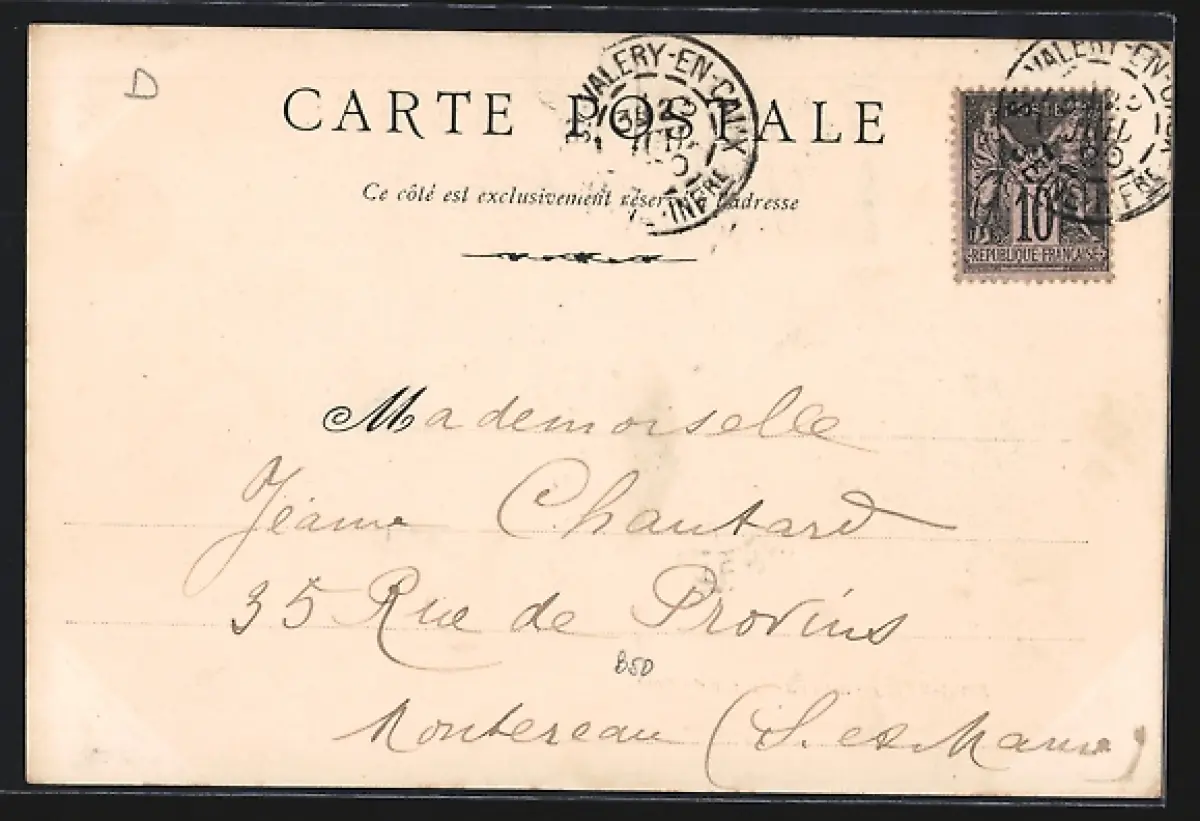 D
CARTE POSTALE
Ce côté est exclusivement réservé à l'adresse
VALERY-EN-CAUX
INFRE
VALERY-EN-C
JUIL
INFRE
10
REPUBLIQUE FRANÇAISE
Mademoiselle
Jeanne Chautard
35 Rue de Provins
B50
Montereau (S. et Marne)